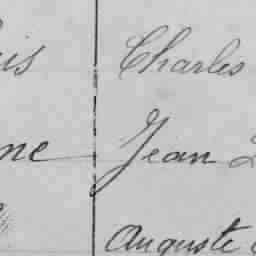 is Charles
ne Jean
Auguste